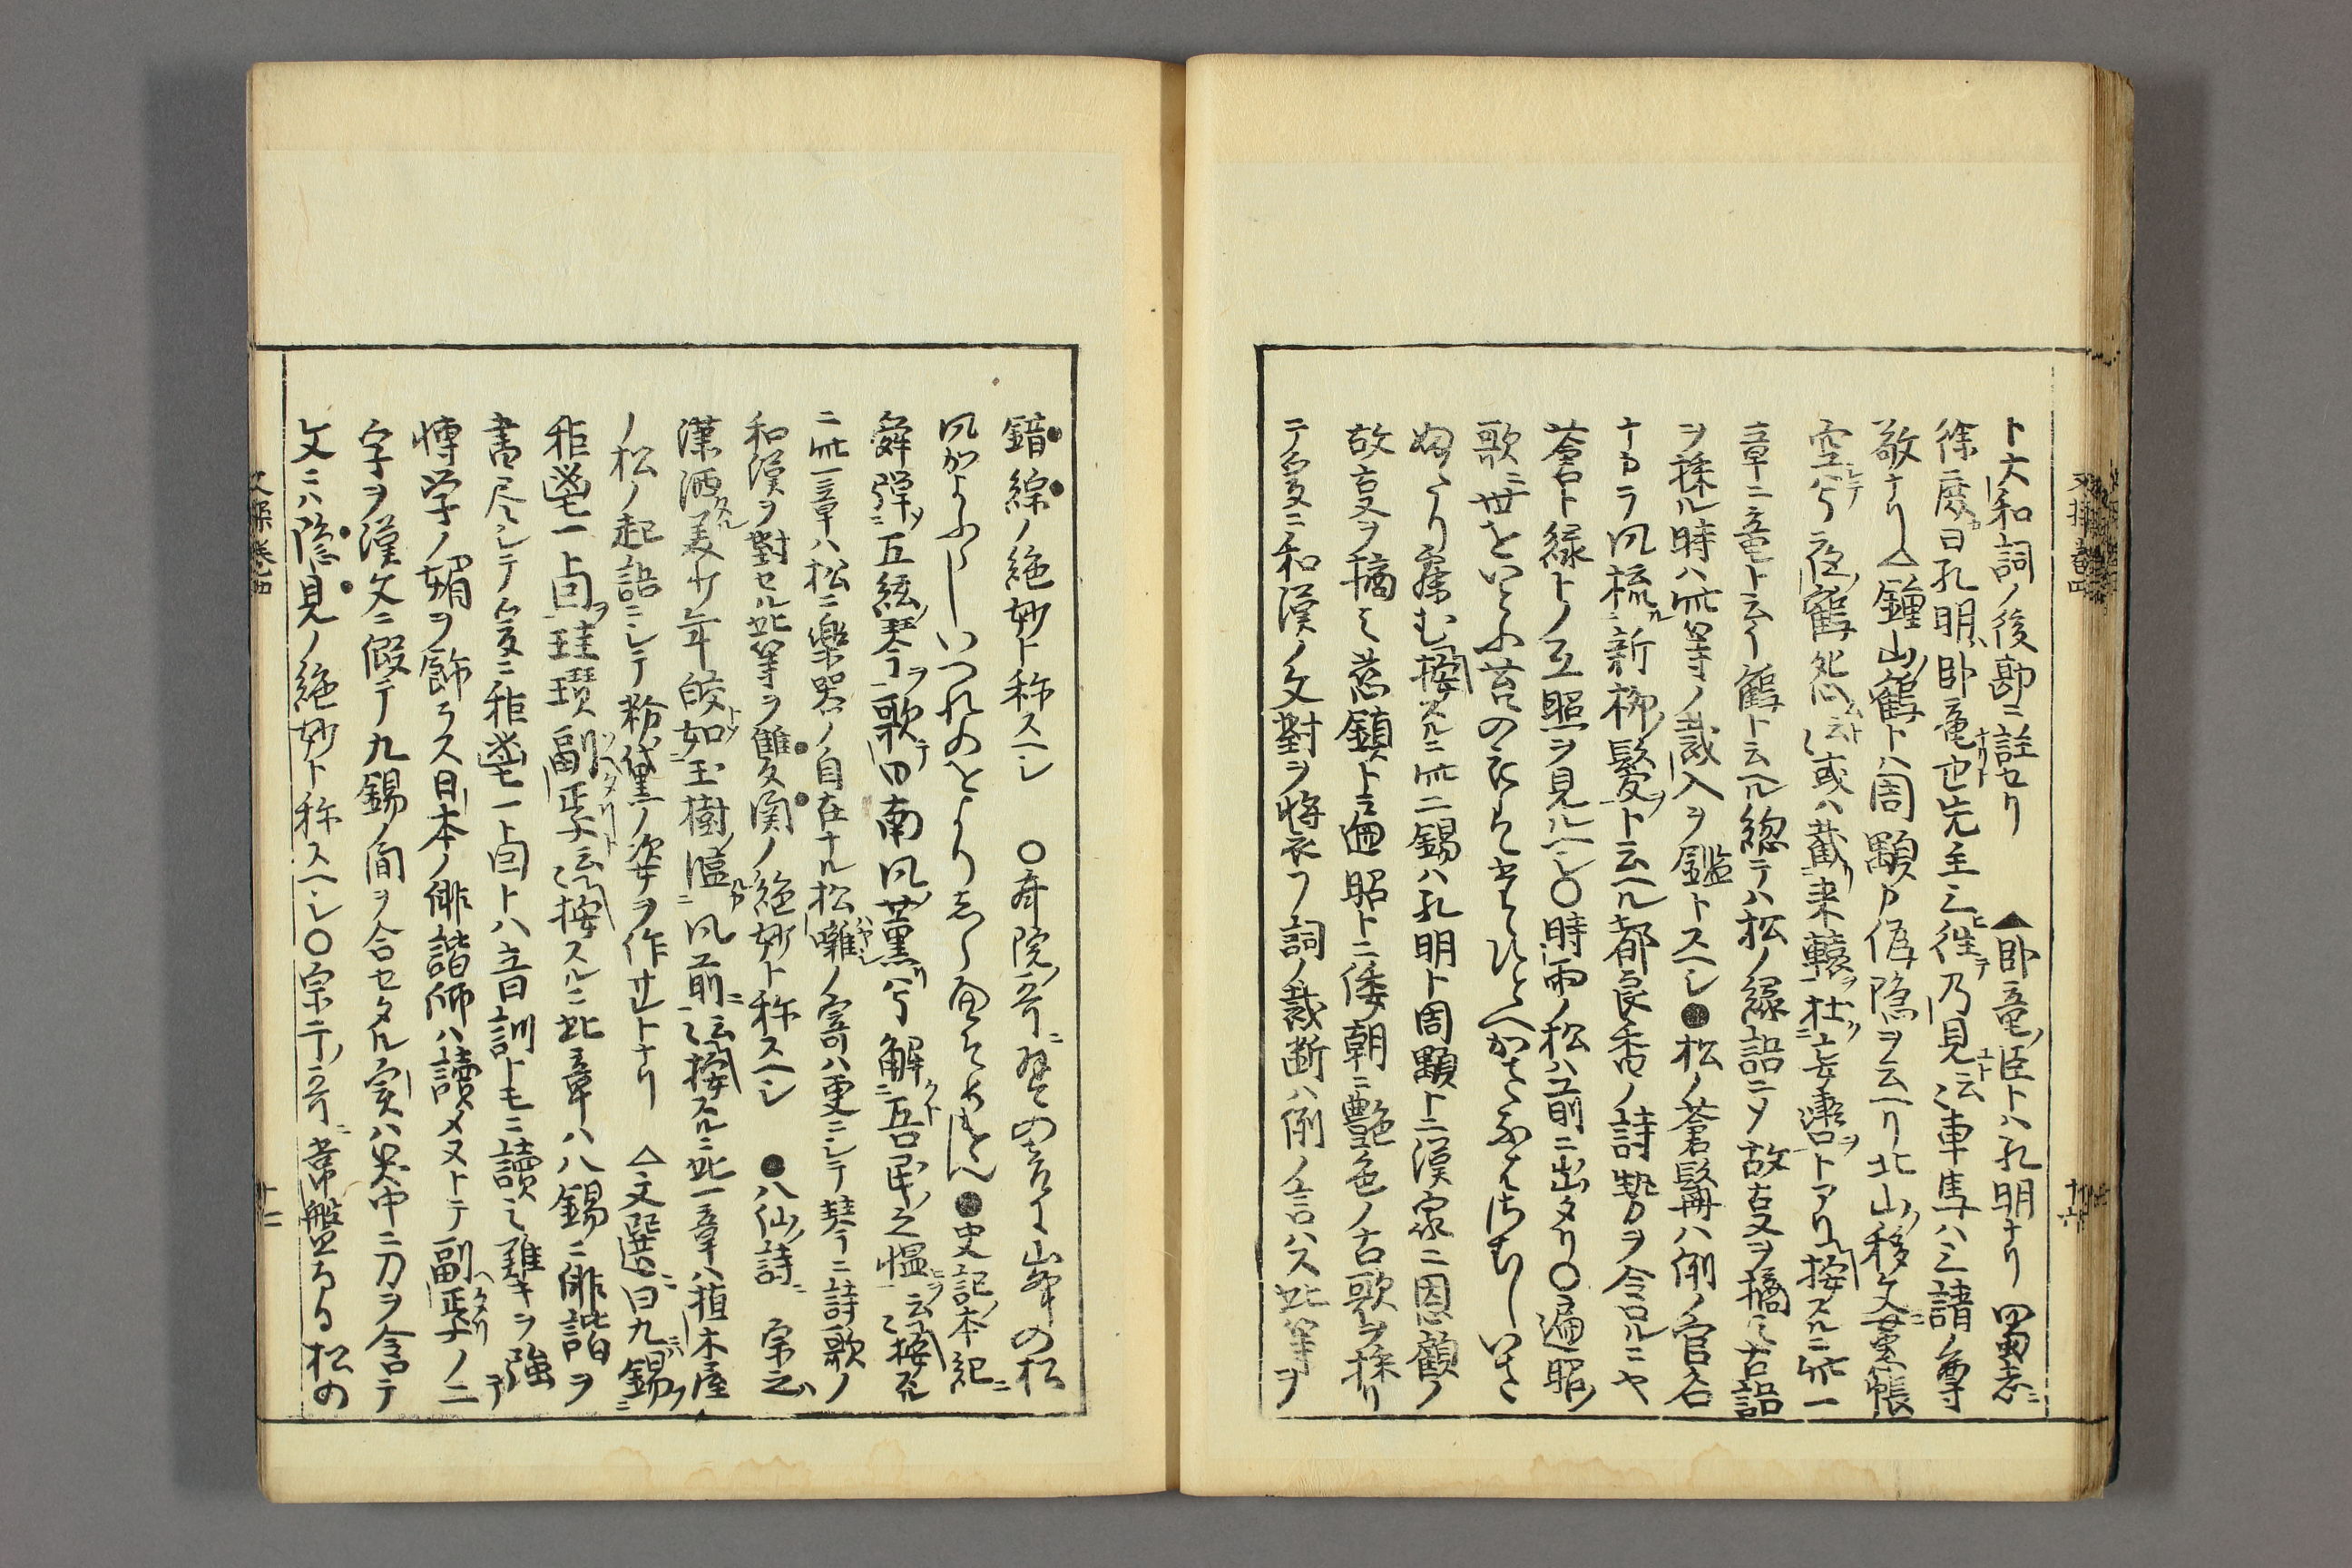 ト大和詞ノ後勘ニ註セリ ▲臥竜ノ臣トハ孔明ナリ 蜀志ニ
徐庶曰孔明ハ臥竜也ナリト先主三往テ乃見ユト云々車馬ハ三請ノ尊
敬ナリ△鐘山ノ鶴トハ周顒カ偽隠ヲ云ヘリ北山ノ移文ニ蕙帳
空シテ兮夜ノ鶴怨ムト云々或ハ截来轅ヲ杜妄轡ヲトアリ按スルニ此一
章ニ竜ト云イ鶴ト云ヘル総テハ松ノ縁語ニメ故事ヲ摘ミ古語
ヲ採ル時ハ此等ノ裁入ヲ鑑トスヘシ●松ノ蒼髯ハ例ノ官名
ナカラ風梳ル新柳ノ髪ヲト云ヘル都良香ノ詩勢ヲ含ルニヤ
蒼ト緑トノ互照ヲ見ルヘシ○時雨ノ松ハ前ニ出タリ○遍昭ノ
歌ニ世をいとふ苔の衣は
按スルニ此二錫ハ孔明ト周顒トニ漢家ニ恩顧ノ
故事ヲ摘ミ慈鎮ト遍昭トニ倭朝ニ艶色ノ古歌ヲ採リ
テ爰ニ和漢ノ文對ヲ将テ詞ノ裁断ハ例ノ言ハス此等ヲ
錯綜ノ絶妙ト称スヘシ ○斎院ノ哥ニ琴の音に峯の松
風かよふらしいつれのをよりしらへそめけん●史記ノ本紀ニ
舜弾シ五絃ノ琴ヲ歌テ曰南風ノ薫リ兮解クト吾民ノ之慍ヲ云々按スル
ニ此一章ハ松ニ樂器ノ自在ナル松囃ハヤシノ寄ハ更ニシテ琴ニ詩歌ノ
和漢ヲ對セル此等ヲ雙関ノ絶妙ト称スヘシ ●八仙ノ詩ニ 宗之ハ
瀟洒タル美少年皎トシテ如玉樹ノ臨ムカ風前ニ云々按スルニ此一章ハ植木屋
ノ松ノ起語ニシテ粉黛ノ姿ヲ作せトナリ △文選ニ曰九錫ニ
秬鬯一卣ヲ珪瓚副ヘタリト焉云々按スルニ此章ハ八錫ニ俳諧ヲ
書尽シテ爰ニ秬鬯一卣トハ音訓トモニ讀ミ難キヲ強テ
博学ノ媚ヲ飾ラス日本ノ俳諧師ハ讀メヌトテ副ヘタリ焉ノ二
字ヲ漢文ニ假テ九錫ノ向ヲ合セタル実ハ笑中ニ刀ヲ含テ
文ニハ隠見ノ絶妙ト称スヘシ○宗于ノ哥ニ常盤なる松の